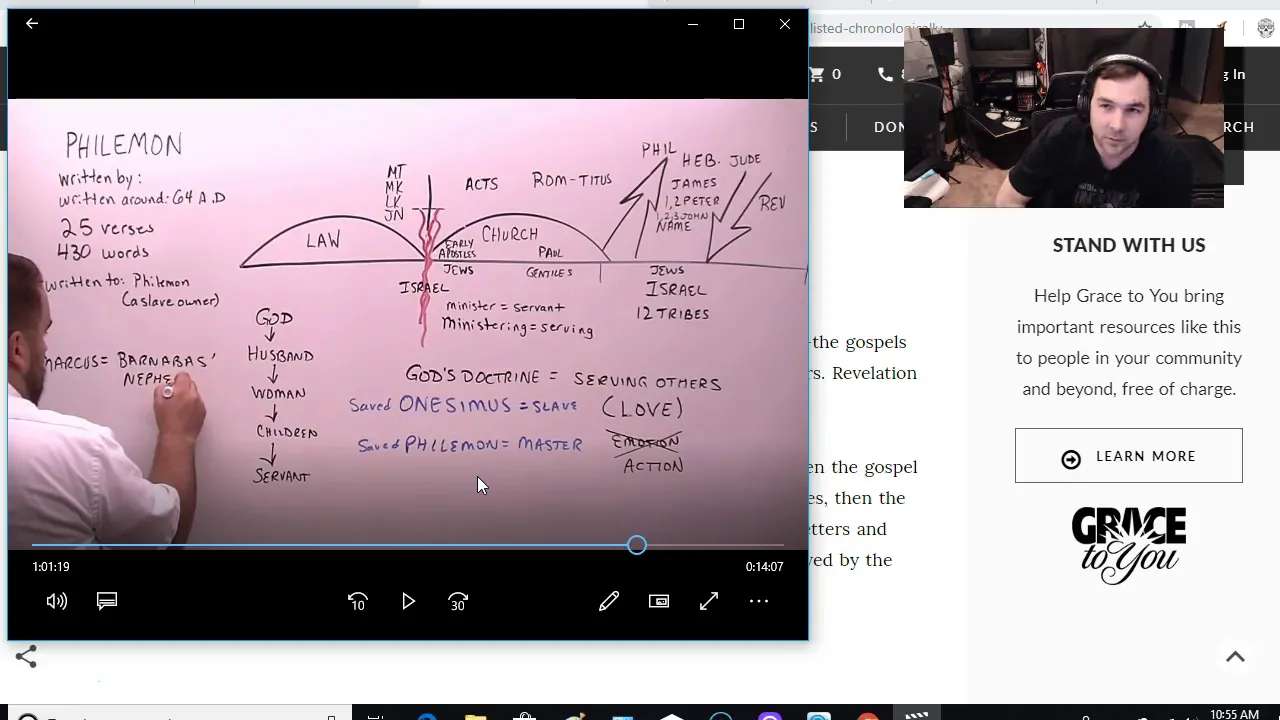 listed-chronologically
0
8
g In
S
DON
RCH
PHILEMON
written by:
written around: 64 A.D
25 verses
430 words
written to: Philemon
(a slave owner)
MARCUS = BARNABAS'
NEPHE
GOD
HUSBAND
WOMAN
CHILDREN
SERVANT
MT
MK
LK
JN
ACTS
ROM-TITUS
LAW
CHURCH
EARLY
APOSTLES
JEWS
PAUL
GENTILES
ISRAEL
minister = servant
Ministering = serving
PHIL
HEB.
JUDE
JAMES
1,2 PETER
1,2,3 JOHN
NAME
REV
JEWS
ISRAEL
12 TRIBES
GOD'S DOCTRINE = SERVING OTHERS
Saved ONESIMUS = SLAVE
(LOVE)
Saved PHILEMON = MASTER
EMOTION
ACTION
1:01:19
0:14:07
10
30
the gospels
rs. Revelation
en the gospel
es, then the
etters and
ved by the
STAND WITH US
Help Grace to You bring
important resources like this
to people in your community
and beyond, free of charge.
LEARN MORE
GRACE
to You
10:55 AM